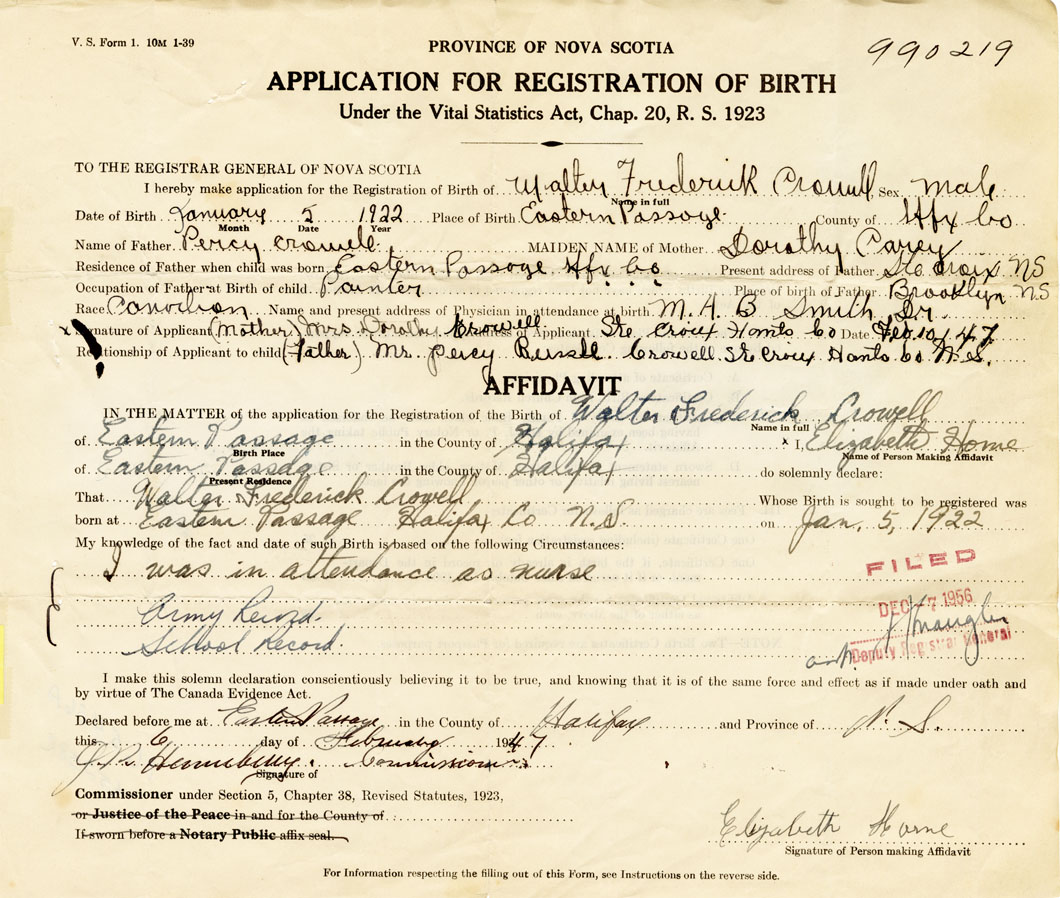 V. S. Form 1. 10M 1-39
990219
PROVINCE OF NOVA SCOTIA
APPLICATION FOR REGISTRATION OF BIRTH
Under the Vital Statistics Act, Chap. 20, R. S. 1923
TO THE REGISTRAR GENERAL OF NOVA SCOTIA
I hereby make application for the Registration of Birth of Walter Frederick Crowell Sex male
Name in full
Date of Birth January 5 1922 Place of Birth Eastern Passage County of Hfx Co
Month Date Year
Name of Father Percy Crowell MAIDEN NAME of Mother Dorothy Carey
Residence of Father when child was born Eastern Passage Hfx Co Present address of Father Ste Croix NS
Occupation of Father at Birth of child Painter Place of birth of Father Brooklyn NS
Race Canadian Name and present address of Physician in attendance at birth M. A. B Smith Dr
x Signature of Applicant (Mother) Mrs Dorothy Crowell Address of Applicant Ste Croix Hants Co Date Feb 10/47
Relationship of Applicant to child (Father) Mr Percy Russell Crowell Ste Croix Hants Co N.S.
AFFIDAVIT
IN THE MATTER of the application for the Registration of the Birth of Walter Frederick Crowell
Name in full
of Eastern Passage in the County of Halifax x I, Elizabeth Horne
Birth Place Name of Person Making Affidavit
of Eastern Passage in the County of Halifax do solemnly declare:
Present Residence
That Walter Frederick Crowell Whose Birth is sought to be registered was
born at Eastern Passage Halifax Co N.S. on Jan. 5, 1922
My knowledge of the fact and date of such Birth is based on the following Circumstances:
I was in attendance as nurse
FILED
DEC -7 1956
Army Record.
School Record.
Deputy Registrar General
I make this solemn declaration conscientiously believing it to be true, and knowing that it is of the same force and effect as if made under oath and
by virtue of The Canada Evidence Act.
Declared before me at Eastern Passage in the County of Halifax and Province of N. S.
this 6 day of February 1947
Signature of
Commissioner under Section 5, Chapter 38, Revised Statutes, 1923,
or Justice of the Peace in and for the County of
If sworn before a Notary Public affix seal.
Elizabeth Horne
Signature of Person making Affidavit
For Information respecting the filling out of this Form, see Instructions on the reverse side.